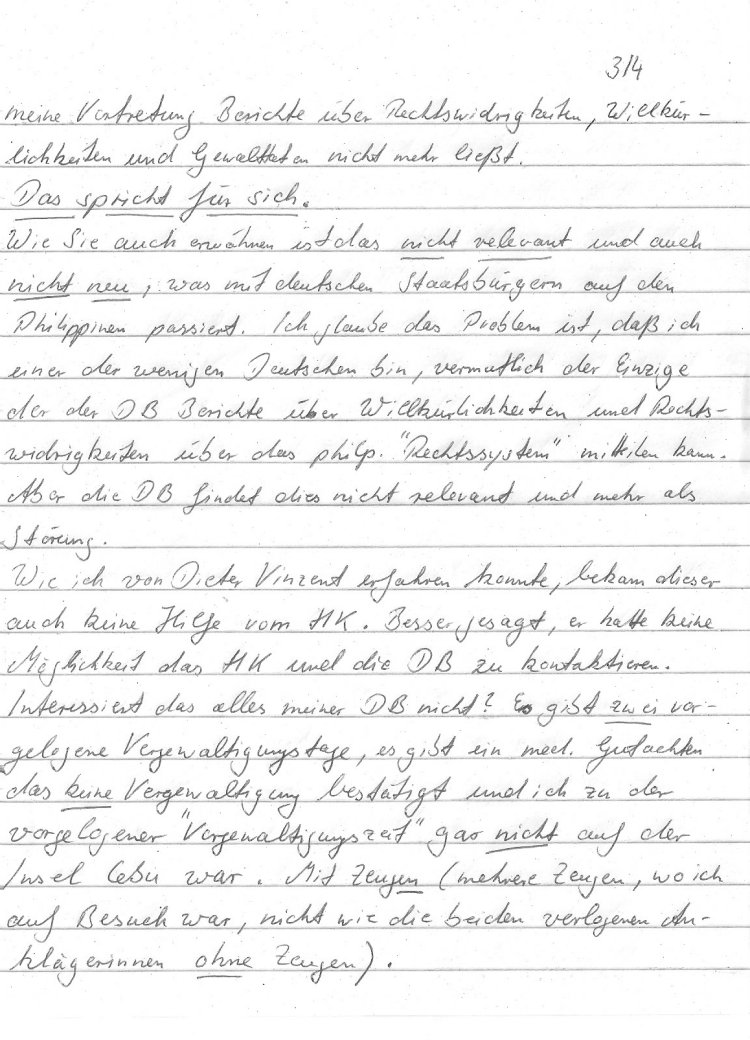 3/4
meine Vertretung Berichte über Rechtswidrigkeiten, Willkür-
lichkeiten und Gewalttaten nicht mehr ließt.
Das spricht für sich.
Wie Sie auch erwähnen ist das nicht relevant und auch
nicht neu, was mit deutschen Staatsbürgern auf den
Philippinen passiert. Ich glaube das Problem ist, daß ich
einer der wenigen Deutschen bin, vermutlich der Einzige
der der DB Berichte über Willkürlichkeiten und Rechts-
widrigkeiten über das philp. "Rechtssystem" mitteilen kann.
Aber die DB findet dies nicht relevant und mehr als
Störung.
Wie ich von Dieter Vinzent erfahren konnte, bekam dieser
auch keine Hilfe vom HK. Besser gesagt, er hatte keine
Möglichkeit das HK und die DB zu kontaktieren.
Interessiert das alles meiner DB nicht? Es gibt zwei vor-
gelogene Vergewaltigungstage, es gibt ein med. Gutachten
das keine Vergewaltigung bestätigt und ich zu der
vorgelogener "Vergewaltigungszeit" gar nicht auf der
Insel Cebu war. Mit Zeugen (mehrere Zeugen, wo ich
auf Besuch war, nicht wie die beiden verlogenen An-
klägerinnen ohne Zeugen).